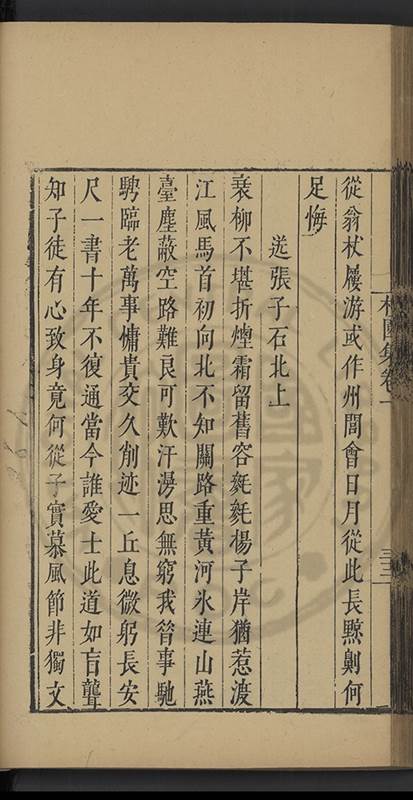 從翁杖屨游或作州閭會日月從此長黥劓何
足悔
送張子石北上
衰柳不堪折煙霜留舊容毵毵楊子岸猶惹渡
江風馬首初向北不知關路重黃河氷連山燕
臺塵蔽空路難良可歎汗漫思無窮我嘗事馳
騁臨老萬事慵貴交久削迹一丘息微躬長安
尺一書十年不復通當今誰愛士此道如盲聾
知子徒有心致身竟何從子實慕風節非獨文
集卷一